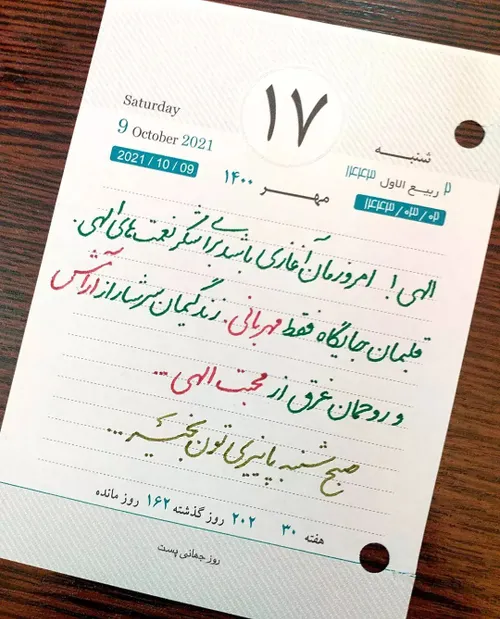 Saturday
۱۷
شنبه
9 October 2021
۲ ربیع الاول ۱۴۴۳
2021 / 10 / 09
مهر ۱۴۰۰
۱۴۴۳ / ۰۳ / ۰۲
الهی! امروزمان آغازی باشد برای شکر نعمت‌های الهی.
قلبمان جایگاه فقط مهربانی. زندگیمان سرشار از آرامش
و روحمان غرق از محبت الهی ...
صبح شنبه پاییزی تون بخیر ...
هفته ۳۰ ۲۰۲ روز گذشته ۱۶۲ روز مانده
روز جهانی پست